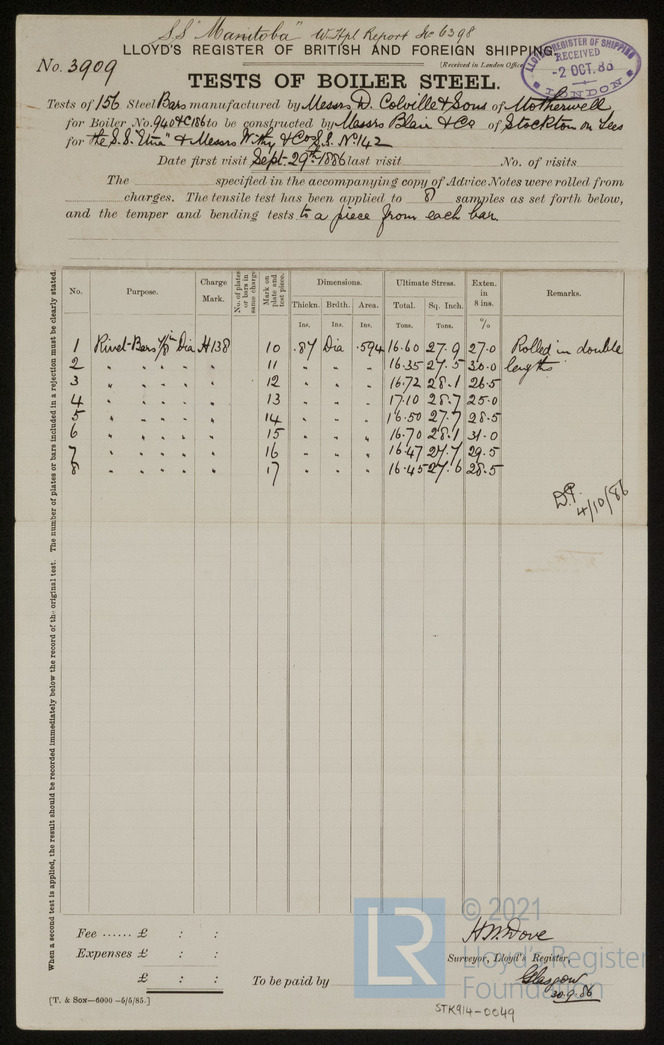 S.S. "Manitoba" W. Hpl Report No 6398
LLOYD'S REGISTER OF BRITISH AND FOREIGN SHIPPING.
No. 3909
(Received in London Office
LLOYD'S REGISTER OF SHIPPING
RECEIVED
-2 OCT. 86
LONDON
TESTS OF BOILER STEEL.
Tests of 156 Steel Bars manufactured by Messrs D. Colville & Sons of Motherwell
for Boiler No. 940 & C186 to be constructed by Messrs Blair & Co of Stockton on Tees
for the S.S. "Etna" & Messrs Withy & Co's S.S. No 142
Date first visit Sept. 29th 1886 last visit No. of visits
The specified in the accompanying copy of Advice Notes were rolled from
charges. The tensile test has been applied to 8 samples as set forth below,
and the temper and bending tests to a piece from each bar.
When a second test is applied, the result should be recorded immediately below the record of the original test. The number of plates or bars included in a rejection must be clearly stated.
No. Purpose. Charge Mark. No. of plates or bars in same charge Mark on plate and test piece. Dimensions. Ultimate Stress. Exten. in 8 ins. Remarks.
Thickn. Brdth. Area. Total. Sq. Inch.
Ins. Ins. Ins. Tons. Tons. %
1 Rivet-Bars 7/8 in Dia H138 10 .87 Dia .594 16.60 27.9 27.0 Rolled in double
2 " " " " " 11 " " " 16.35 27.5 30.0 lengths
3 " " " " " 12 " " " 16.72 28.1 26.5
4 " " " " " 13 " " " 17.10 28.7 25.0
5 " " " " " 14 " " " 16.50 27.7 28.5
6 " " " " " 15 " " " 16.70 28.1 31.0
7 " " " " " 16 " " " 16.47 27.7 29.5
8 " " " " " 17 " " " 16.45 27.6 28.5
D.P.
4/10/86
Fee ...... £ : :
Expenses £ : :
£ : :
To be paid by
H.W. Dove
Surveyor, Lloyd's Register,
Glasgow
30.9.86
[T. & Son—6000—5/5/85.]
STK914-0049
LR
© 2021
Lloyd's Register
Foundation